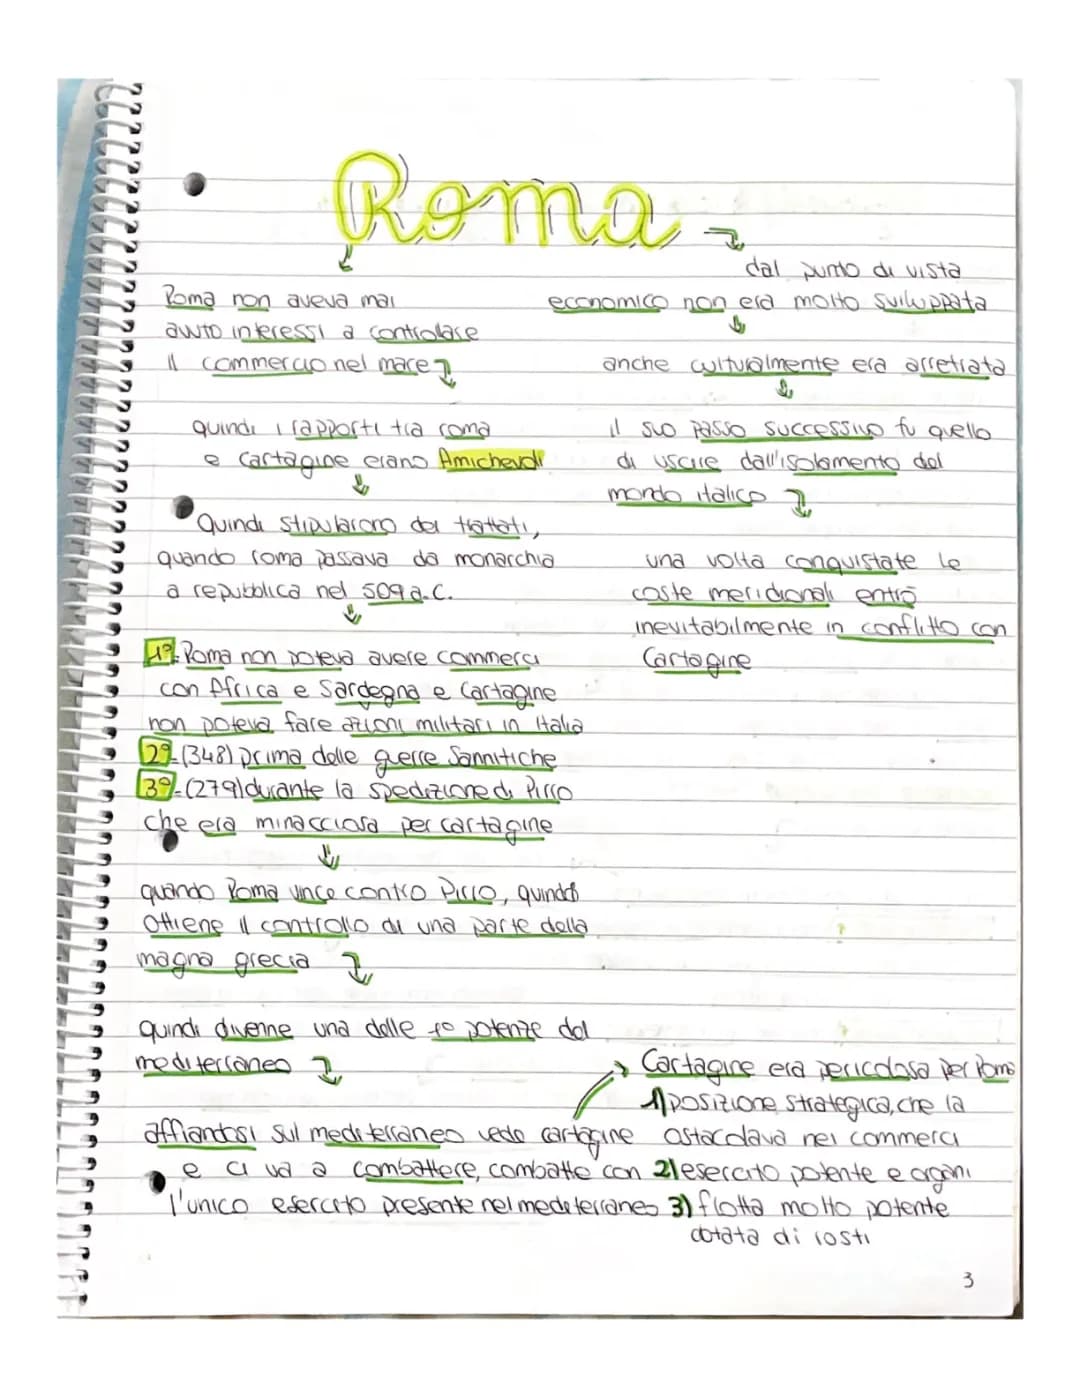 Roma
Roma non aveva mai
avuto interessi a controllare
il commercio nel mare
quindi i rapporti tra roma
e Cartagine erano Amichevoli
Quindi stipularono dei trattati,
quando roma passava da monarchia
a repubblica nel 509 a.C.
1º- Roma non poteva avere commerci
con Africa e Sardegna e Cartagine
non poteva fare azioni militari in Italia
2º-(348) prima delle guerre Sannitiche
3º-(279) durante la spedizione di Pirro
che era minacciosa per cartagine
quando Roma vince contro Pirro, quindi
ottiene il controllo di una parte della
magna grecia
quindi divenne una delle potenze del
mediterraneo
affiandosi sul mediterraneo vede cartagine
e ci va a combattere, combatte con
l'unico esercito presente nel mediterraneo
dal punto di vista
economico non era molto sviluppata
anche culturalmente era arretrata
il suo passo successivo fu quello
di uscire dall'isolamento del
mondo italico
una volta conquistate le
coste meridionali entrò
inevitabilmente in conflitto con
Cartagine
Cartagine era pericolosa per Roma
1) posizione strategica, che la
ostacolava nei commerci
2) esercito potente e organi
3) flotta molto potente
dotata di rostri
3